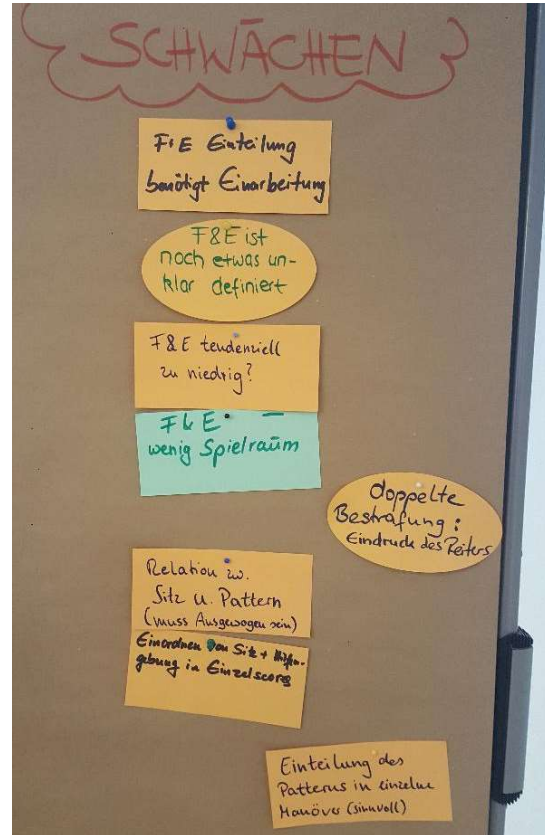 SCHWÄCHEN
F&E Einteilung
benötigt Einarbeitung
F&E ist
noch etwas un-
klar definiert
F&E tendenziell
zu niedrig?
F&E
wenig Spielraum
doppelte
Bestrafung:
Eindruck des Reiters
Relation zw.
Sitz u. Pattern
(muss Ausgewogen sein)
Einordnen von Sitz + Hilfen-
gebung in Einzelscores
Einteilung des
Patterns in einzelne
Manöver (sinnvoll)